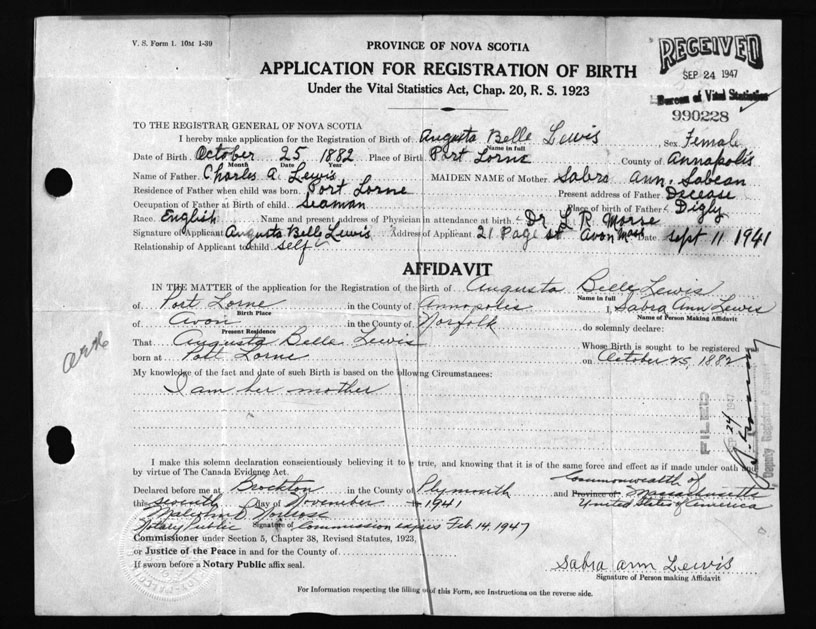 V. S. Form 1. 10M 1-39
PROVINCE OF NOVA SCOTIA
RECEIVED
APPLICATION FOR REGISTRATION OF BIRTH
SEP 24 1947
Under the Vital Statistics Act, Chap. 20, R. S. 1923
Bureau of Vital Statistics
990228
TO THE REGISTRAR GENERAL OF NOVA SCOTIA
I hereby make application for the Registration of Birth of Augusta Belle Lewis Sex Female
Name in full
Date of Birth October 25 1882 Place of Birth Port Lorne County of Annapolis
Month Date Year
Name of Father Charles A. Lewis MAIDEN NAME of Mother Sabra Ann Sabean
Residence of Father when child was born Port Lorne Present address of Father Decease
Occupation of Father at Birth of child Seaman Place of birth of Father Digby
Race English Name and present address of Physician in attendance at birth Dr L. R. Morse
Signature of Applicant Augusta Belle Lewis Address of Applicant 21 Page st Avon Mass Date Sept 11 1941
Relationship of Applicant to child self
AFFIDAVIT
IN THE MATTER of the application for the Registration of the Birth of Augusta Belle Lewis
Name in full
of Port Lorne in the County of Annapolis I, Sabra Ann Lewis
Birth Place Name of Person Making Affidavit
of Avon in the County of Norfolk do solemnly declare:
Present Residence
That Augusta Belle Lewis Whose Birth is sought to be registered was
born at Port Lorne on October 25, 1882
My knowledge of the fact and date of such Birth is based on the following Circumstances:
I am her mother
FILED
SEP 24 1947
I make this solemn declaration conscientiously believing it to be true, and knowing that it is of the same force and effect as if made under oath and
by virtue of The Canada Evidence Act.
Commonwealth of
Declared before me at Brockton in the County of Plymouth and Province of Massachusetts
this seventh day of November 1941 United States of America
Malcolm D.
Notary Public Signature of Commission expires Feb. 14, 1947
Commissioner under Section 5, Chapter 38, Revised Statutes, 1923,
or Justice of the Peace in and for the County of
If sworn before a Notary Public affix seal.
Sabra ann Lewis
Signature of Person making Affidavit
For Information respecting the filling out of this Form, see Instructions on the reverse side.